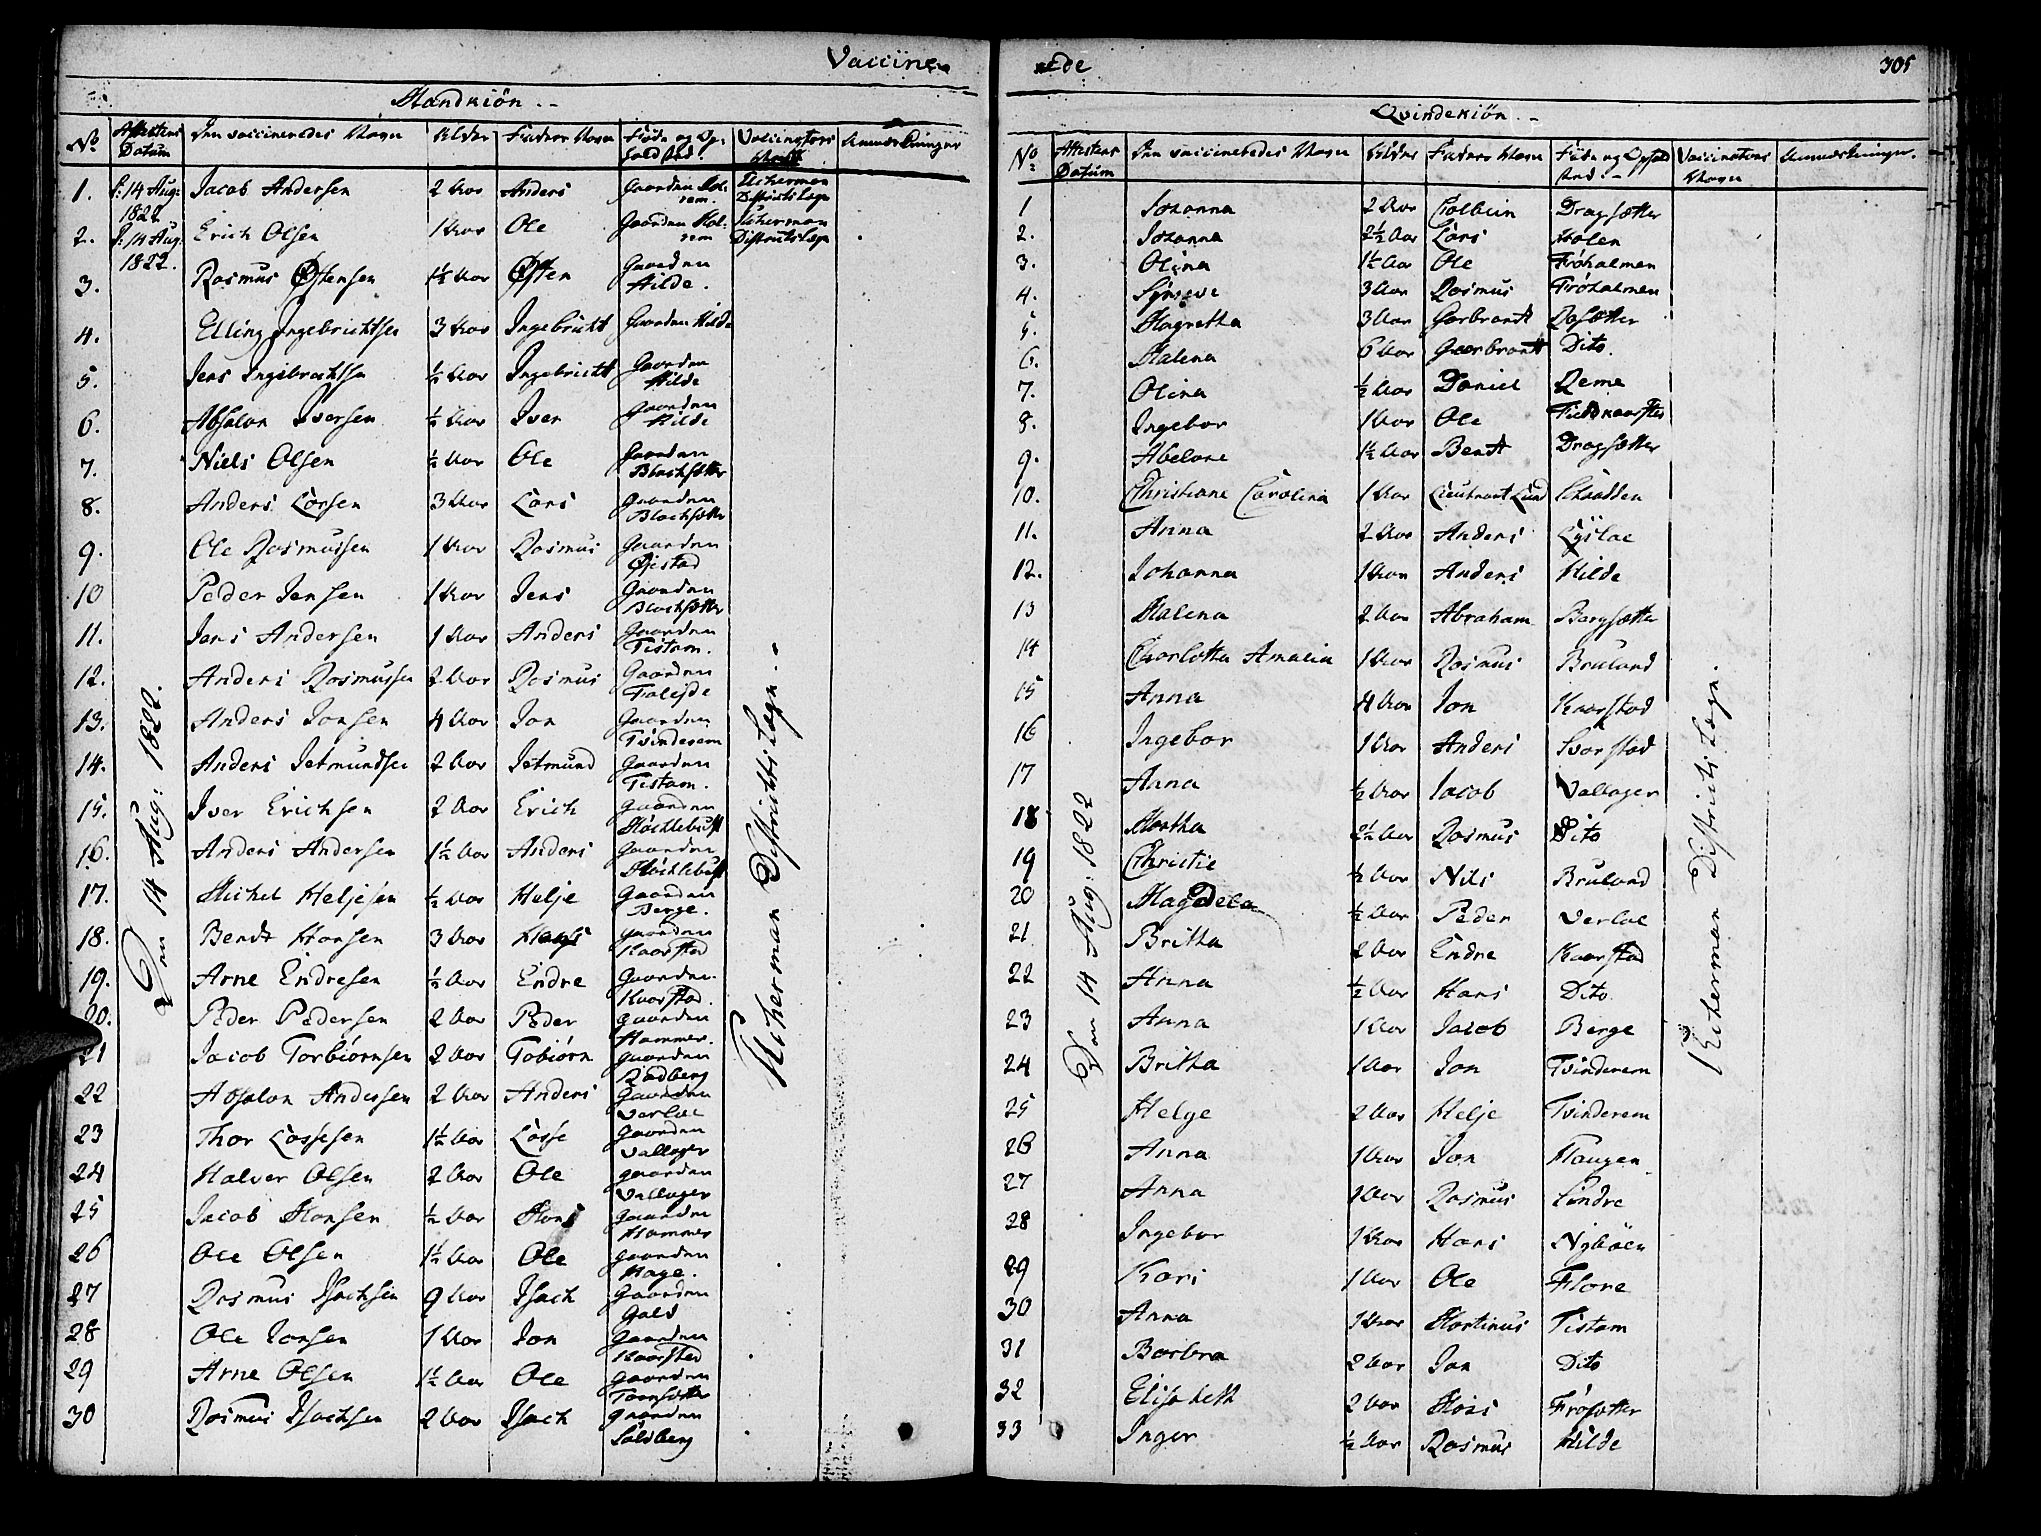 Vaccine
Mandkiön
No Attestens Datum Den vaccineredes Navn Alder Faders Navn Föde og Op: hold sted. Vaccinators Navn Anmærkninger
1. d: 14 Aug: 1822 Jacob Andersen 2 Aar Anders Gaarden
Districts Læge
2. d: 14 Aug. 1822. Erich Olsen 1 Aar Ole Gaarden
Districts Læge
3. Rasmus Østensen 1½ Aar Østen Gaarden Hilde.
4. Elling Ingebrichtsen 3 Aar Ingebricht Gaarden Hilde
5. Jens Ingebrechtsen ½ Aar Ingebricht Gaarden Hilde
6. Absalon Iversen ½ Aar Iver Gaarden Hilde
7. Niels Olsen ½ Aar Ole Gaarden Blachsætter
8. Anders Larsen 3 Aar Lars Gaarden Blachsætter
9. Ole Rasmussen 1 Aar Rasmus Gaarden
10 Peder Jensen 1 Aar Jens Gaarden Blachsætter
11. Jens Andersen 1 Aar Anders Gaarden Tistam.
12. Anders Rasmussen 2 Aar Rasmus Gaarden Faleide
13. Anders Jonsen 4 Aar Jon Gaarden Tvinderem
14. Anders Jetmundsen 2 Aar Jetmund Gaarden Tistam.
15. Iver Erichsen 2 Aar Erich Gaarden
16. Anders Andersen 1½ Aar Anders Gaarden
17. Michel Heljesen ½ Aar Helje Gaarden Berge.
18. Bendt Hansen 3 Aar Hans Gaarden Kaarstad
19. Arne Endresen ½ Aar Endre Gaarden Kaarstad.
20. Peder Pedersen 2 Aar Peder gaarden Hammer.
21 Jacob Torbiörnsen 2 Aar Tobiörn gaarden Rødberg
22 Absalon Andersen 2 Aar Anders Gaarden Verlae
23 Thor Lassesen 1½ Aar Lasse Gaarden Vallager
24 Halver Olsen 2 Aar Ole gaarden Vallager
25 Jacob Hansen ½ Aar Hans Gaarden Hammer
26 Ole Olsen 1½ Aar Ole gaarden Hage.
27 Rasmus Isachsen 9 Aar Isach Gaarden Gald
28 Ole Jonsen 1 Aar Jon Gaarden Kaarstad
29 Arne Olsen 1½ Aar Ole gaarden
30 Rasmus Isachsen 2 Aar Isach gaarden
Den 14 Aug: 1822.
Districts Læge.
rede 305
Qvindekiön
No Attestens Datum Den vaccineredes Navn Alder Faders Navn Föde og Opholdsted. Vaccinators Navn Anmærkninger.
1 Johanna 2 Aar Dragsætter
2. Johanna 2½ Aar Lars Holen
3. Olina 1½ Aar Ole Fröholmen
4. 3 Aar Rasmus Fröholmen
5. Magretha 3 Aar Gerbrandt
6. Malena 6 Aar Gerbrandt Dito.
7. Olina ½ Aar Daniel
8. Ingebor 1 Aar Ole
9. Abelone 1½ Aar Bendt Dragsætter
10. Christiane Carolina 1 Aar Lieutnant Lund
11. Anna 2 Aar Anders
12. Johanna 1 Aar Anders Hilde
13 Malena 2 Aar Abraham Bergsætter
14 Charlotta Amalia 1 Aar Rasmus Bruland
15 Anna 4 Aar Jon Kaarstad
16 Ingebor 1 Aar Anders Svarstad
17 Anna ½ Aar Jacob Vallager
18 Martha 2½ Aar Rasmus Dito
19 Christie ½ Aar Nils Bruland
20 Magdela ½ Aar Peder Verlae
21 Britha 2 Aar Endre Kaarstad
22 Anna ½ Aar Hans Dito.
23 Anna 1 Aar Jacob Berge
24 Britha 1 Aar Jon Tvinderem
25 Helge 2 Aar Helje Tvinderem
26 Anna 1 Aar Jon Haugen
27 Anna 1 Aar Rasmus
28 Ingebor 1 Aar Hans
29 Kari 1 Aar Ole Flore
30 Anna 1 Aar Martinus Tistam
31 Barbra 2 Aar Jon Dito
32 Elisabeth 2 Aar Hans
33 Inger ½ Aar Rasmus Hilde
Den 14 Aug: 1822
Districts Læge.